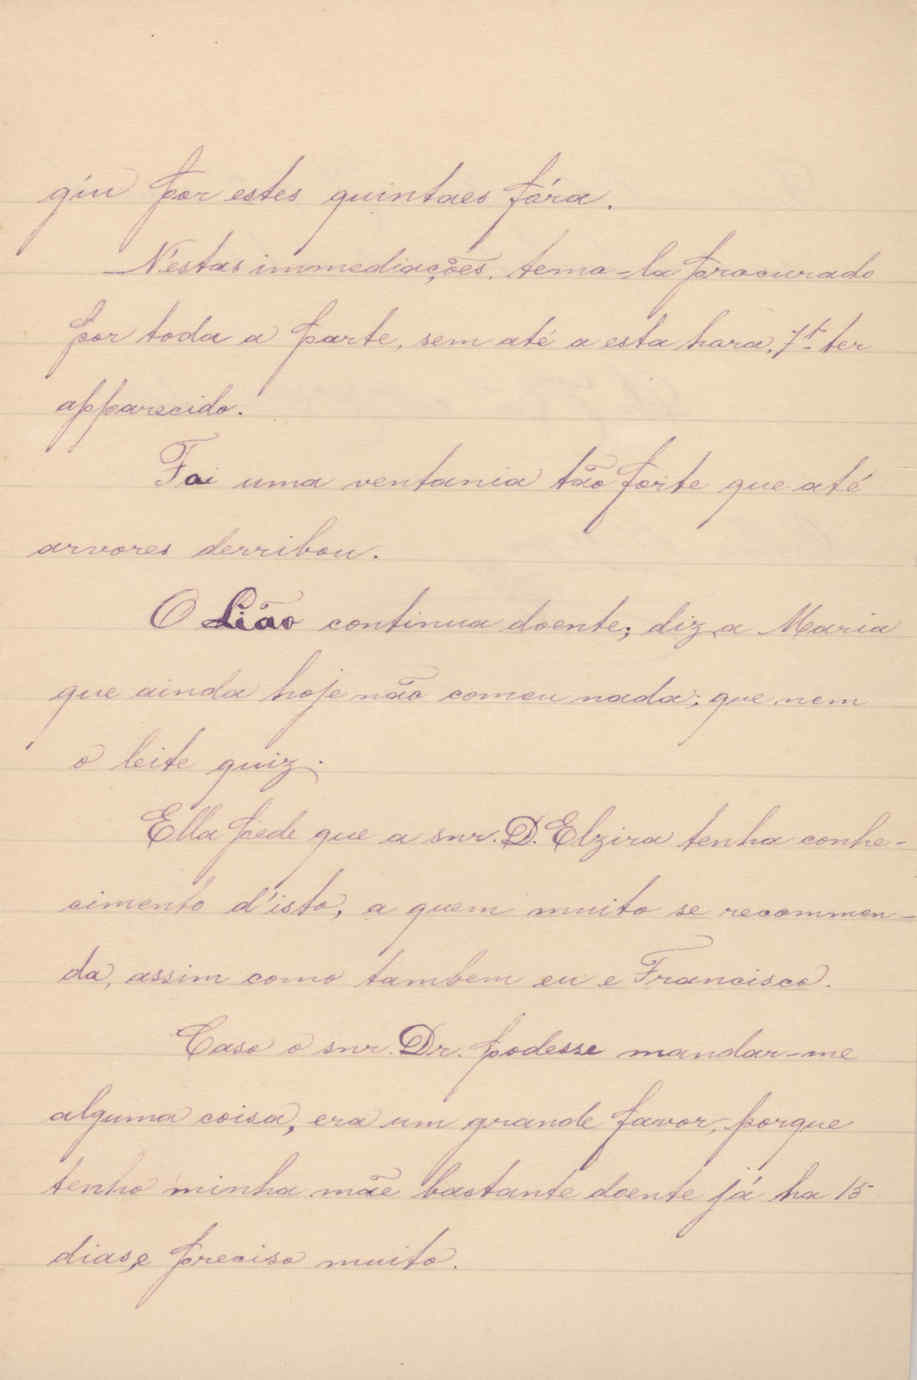 giu por estes quintaes fóra.
N'estas immediações, temo-la procurado
por toda a parte, sem até a esta hora, 7h ter
apparecido.
Foi uma ventania tão forte que até
arvores derribou.
O Lião continua doente; diz a Maria
que ainda hoje não comeu nada; que nem
o leite quiz.
Ella pede que a snr. D. Elzira tenha conhe-
cimento d'isto, a quem muito se recommen-
da, assim como tambem eu e Francisco.
Caso o snr. Dr. podesse mandar-me
alguma coisa, era um grande favor, porque
tenho minha mãe bastante doente já ha 15
dias, e preciso muito.